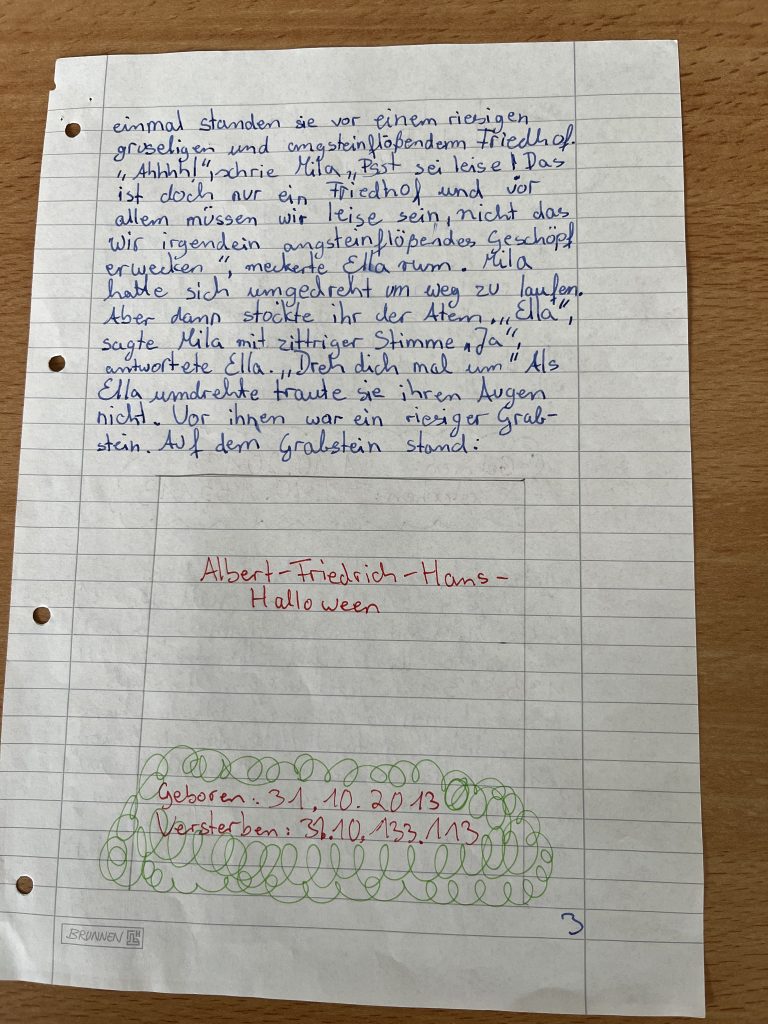 einmal standen sie vor einem riesigen
gruseligen und angsteinflößendenm Friedhof.
„Ahhhh!", schrie Mila „Psst sei leise! Das
ist doch nur ein Friedhof und vor
allem müssen wir leise sein, nicht das
wir irgendein angsteinflößendes Geschöpf
erwecken", meckerte Ella rum. Mila
hatte sich umgedreht um weg zu laufen.
Aber dann stockte ihr der Atem. „Ella",
sagte Mila mit zittriger Stimme „Ja",
antwortete Ella. „Dreh dich mal um" Als
Ella umdrehte traute sie ihren Augen
nicht. Vor ihnen war ein riesiger Grab-
stein. Auf dem Grabstein stand:
Albert-Friedrich-Hans-
Halloween
Geboren: 31.10.2013
Versterben: 31.10.133.113
3
BRUNNEN